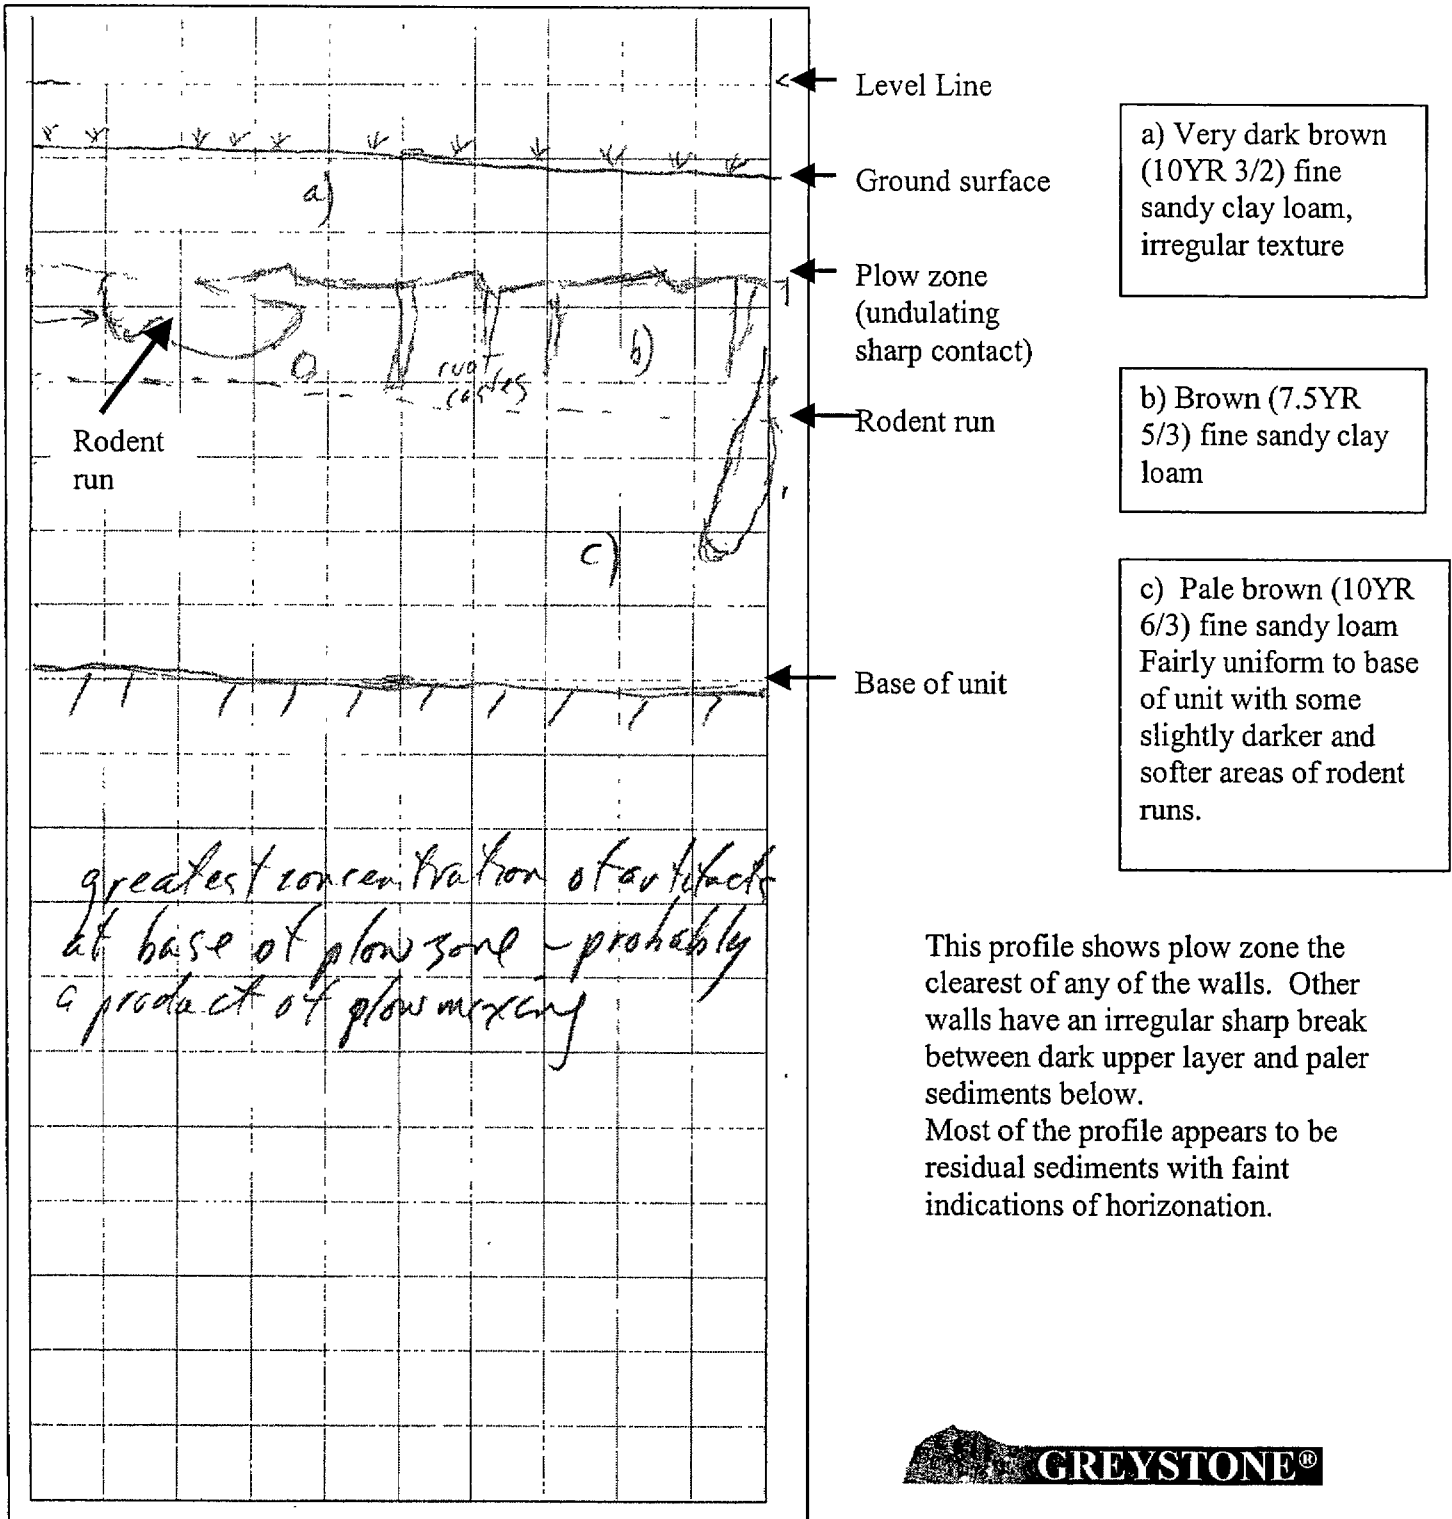 Level Line
Ground surface
a)
Plow zone
(undulating
sharp contact)
b)
root
castes
Rodent run
Rodent
run
c)
Base of unit
greatest concentration of artifacts
at base of plow zone - probably
a product of plow mixing
a) Very dark brown
(10YR 3/2) fine
sandy clay loam,
irregular texture
b) Brown (7.5YR
5/3) fine sandy clay
loam
c) Pale brown (10YR
6/3) fine sandy loam
Fairly uniform to base
of unit with some
slightly darker and
softer areas of rodent
runs.
This profile shows plow zone the
clearest of any of the walls. Other
walls have an irregular sharp break
between dark upper layer and paler
sediments below.
Most of the profile appears to be
residual sediments with faint
indications of horizonation.
GREYSTONE®